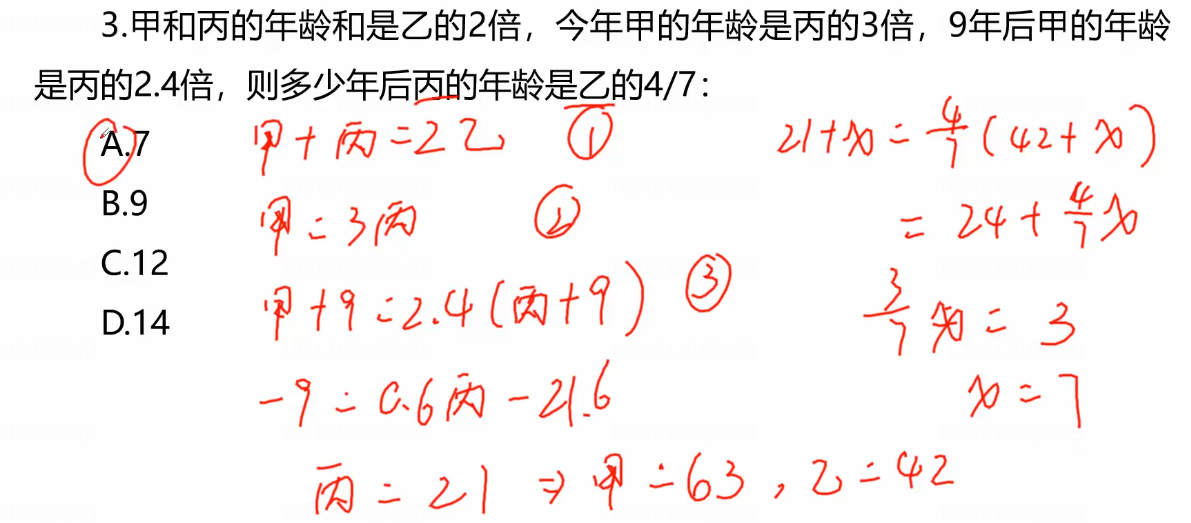 3.甲和丙的年龄和是乙的2倍，今年甲的年龄是丙的3倍，9年后甲的年龄
是丙的2.4倍，则多少年后丙的年龄是乙的4/7：
A.7
B.9
C.12
D.14
甲+丙=2乙 ①
甲=3丙 ②
甲+9=2.4(丙+9) ③
-9=0.6丙-21.6
丙=21⇒甲=63，乙=42
21+x=4/7(42+x)
=24+4/7x
3/7x=3
x=7